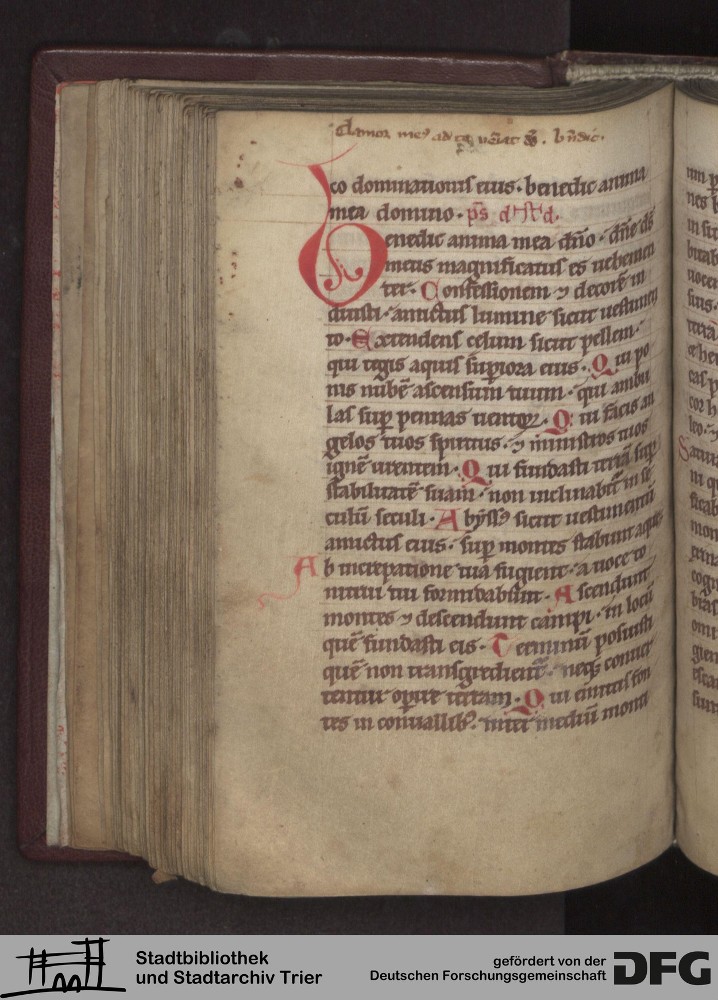 Clamor me⁹ ad te ueīat · bn̄dic.
co dominationis eius · benedic anima
mea domino · ps d͞d.
Benedic anima mea dn̄o · dn̄e d̄s
meus magnificatus es uehemen
ter · Confessionem ⁊ decorē in
duisti · amictus lumine sicut uestimen
to · Extendens celum sicut pellem ·
qui tegis aquis suꝑiora eius · Qui po
nis nubē ascensum tuum · qui ambu
las suꝑ pennas uentoꝝ · Qui facis an
gelos tuos spiritus · ⁊ ministros tuos
ignē urentem · Qui fundasti terrā suꝑ
stabilitatē suam · non inclinabit̄ in se
culū seculi · Abyss⁹ sicut uestimentū
amictus eius · suꝑ montes stabunt aque
Ab increpatione tua fugient · a uoce to
nitrui tui formidabunt · Ascendunt
montes ⁊ descendunt campi · in locū
quē fundasti eis · Terminū posuisti
quē non transgredient̄ · neqꝫ conuer
tentur oꝑire terram · Qui emittis fon
tes in conuallibꝫ · inter mediū monti
Stadtbibliothek
und Stadtarchiv Trier
gefördert von der
Deutschen Forschungsgemeinschaft
DFG